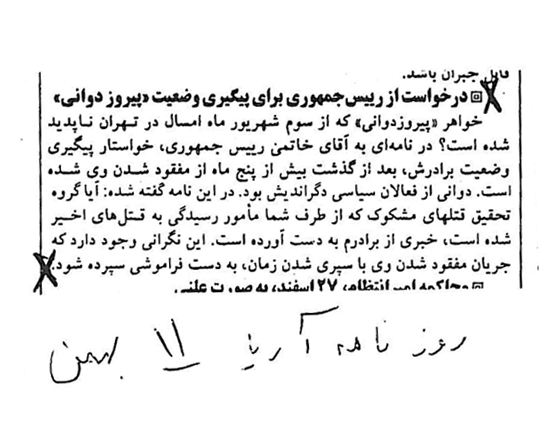 قابل جبران باشد.
درخواست از رییس‌جمهوری برای پیگیری وضعیت «پیروز دوانی»
خواهر «پیروزدوانی» که از سوم شهریور ماه امسال در تهران ناپدید
شده است؟ در نامه‌ای به آقای خاتمی رییس جمهوری، خواستار پیگیری
وضعیت برادرش، بعد از گذشت بیش از پنج ماه از مفقود شدن وی شده
است. دوانی از فعالان سیاسی دگراندیش بود. در این نامه گفته شده: آیا گروه
تحقیق قتلهای مشکوک که از طرف شما مأمور رسیدگی به قتل‌های اخیر
شده است، خبری از برادرم به دست آورده است. این نگرانی وجود دارد که
جریان مفقود شدن وی با سپری شدن زمان، به دست فراموشی سپرده شود.
محاکمه امیرانتظام، ۲۷ اسفند، به صورت علنی
روزنامه آریا ۱۱ بهمن